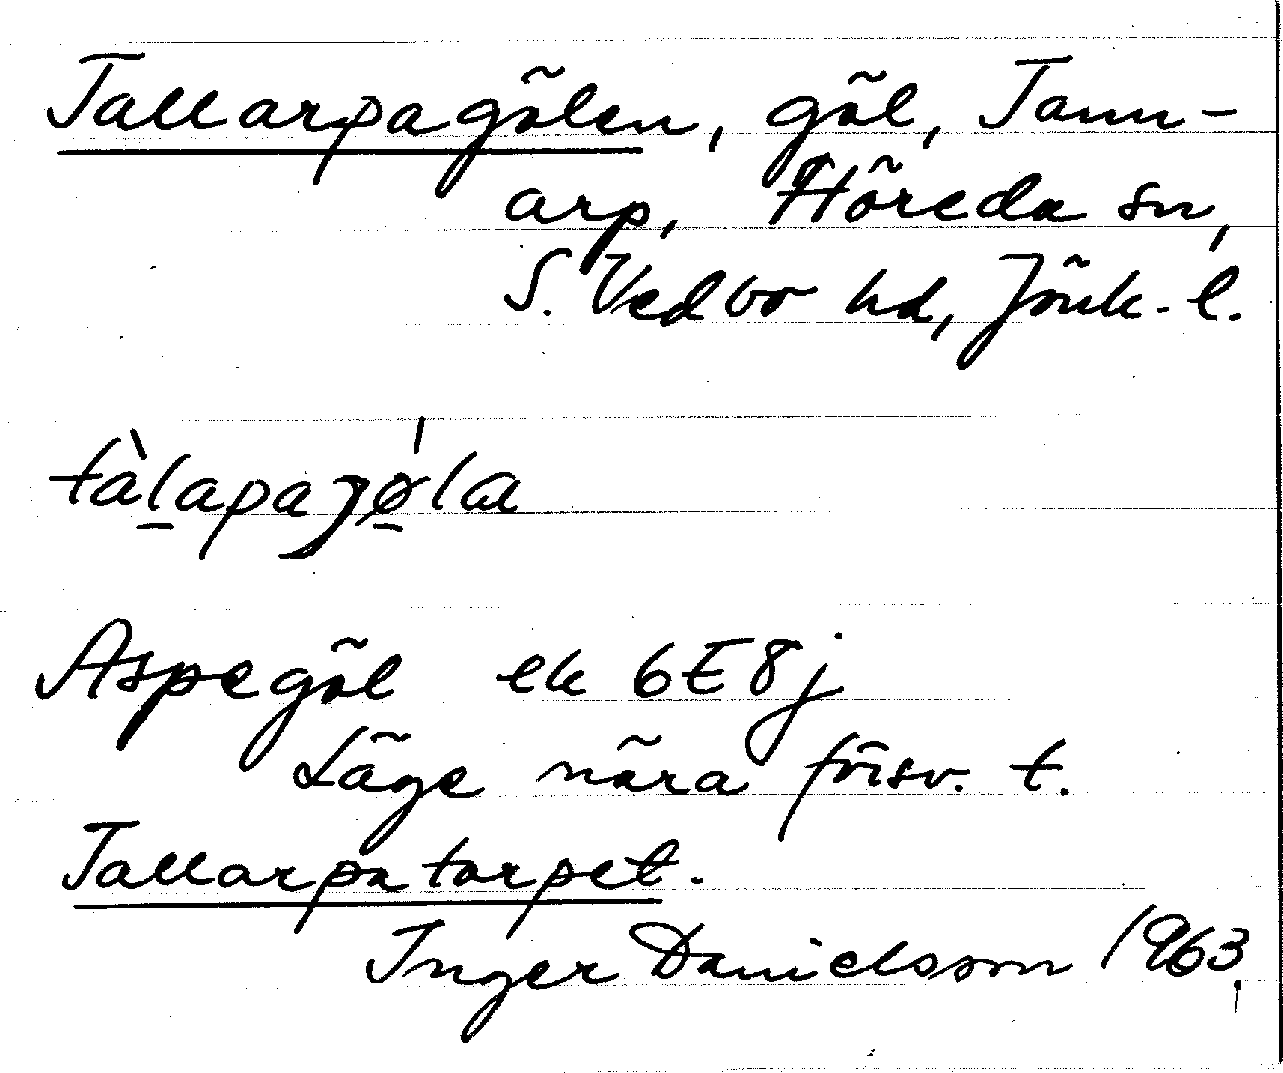 Tallarpagölen, göl, Tann-
arp, Höreda sn,
S. Vedbo hd, Jönk. l.
tàl̠apaȷǿ̠la
Aspegöl ek 6E8j
Läge nära försv. t.
Tallarpatorpet.
Inger Danielsson 1963.